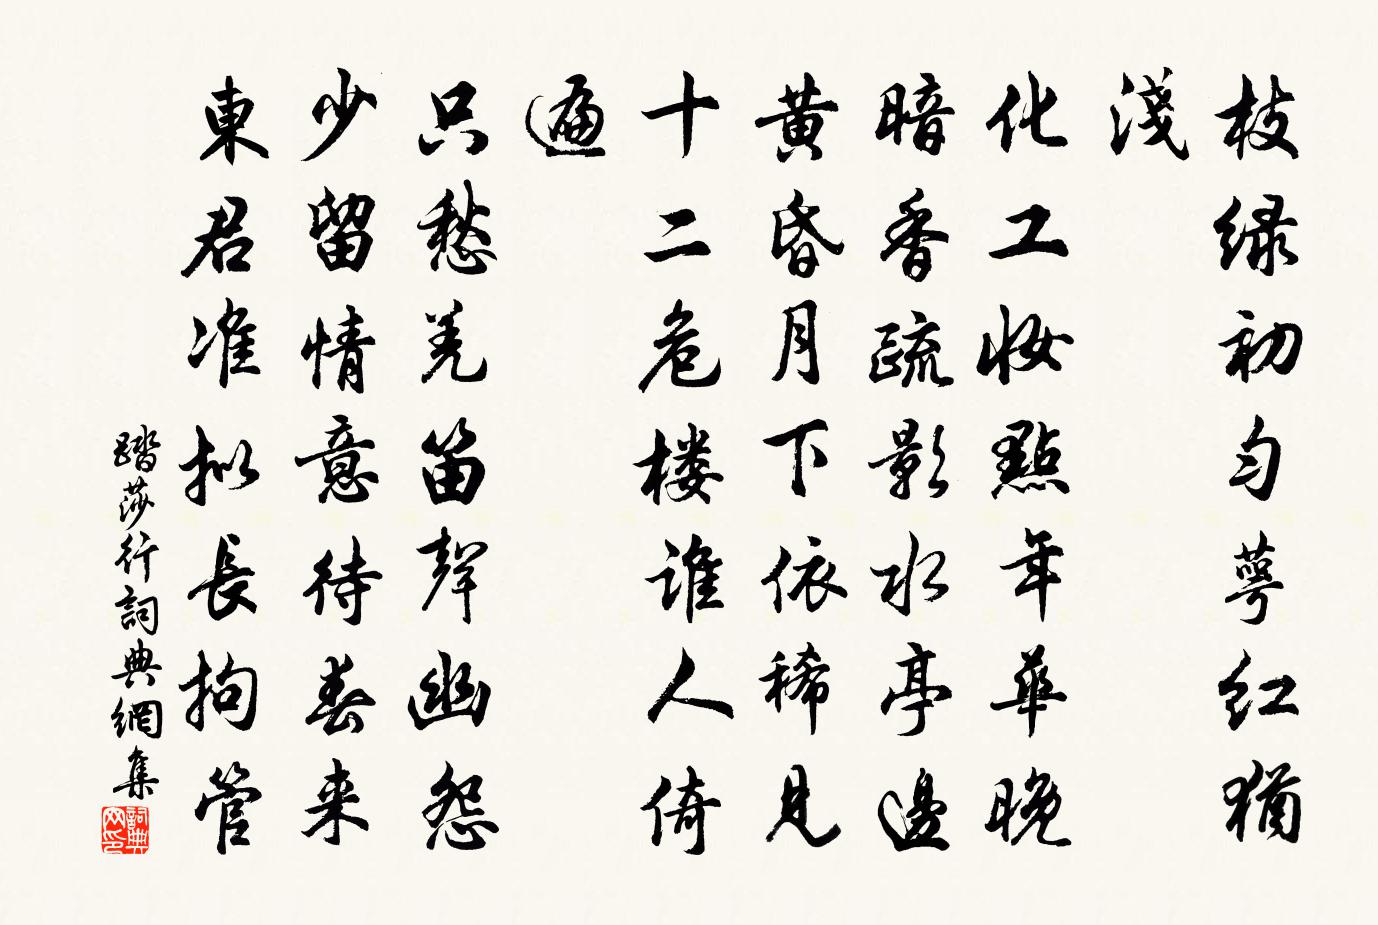 枝绿初匀萼红犹
淺
化工妝點年華晚
暗香疏影水亭邊
黄昏月下依稀見
十二危楼誰人倚
遍
只愁羌笛聲幽怨
少留情意待春来
東君准拟長拘管
踏莎行詞典網集
詞典网印